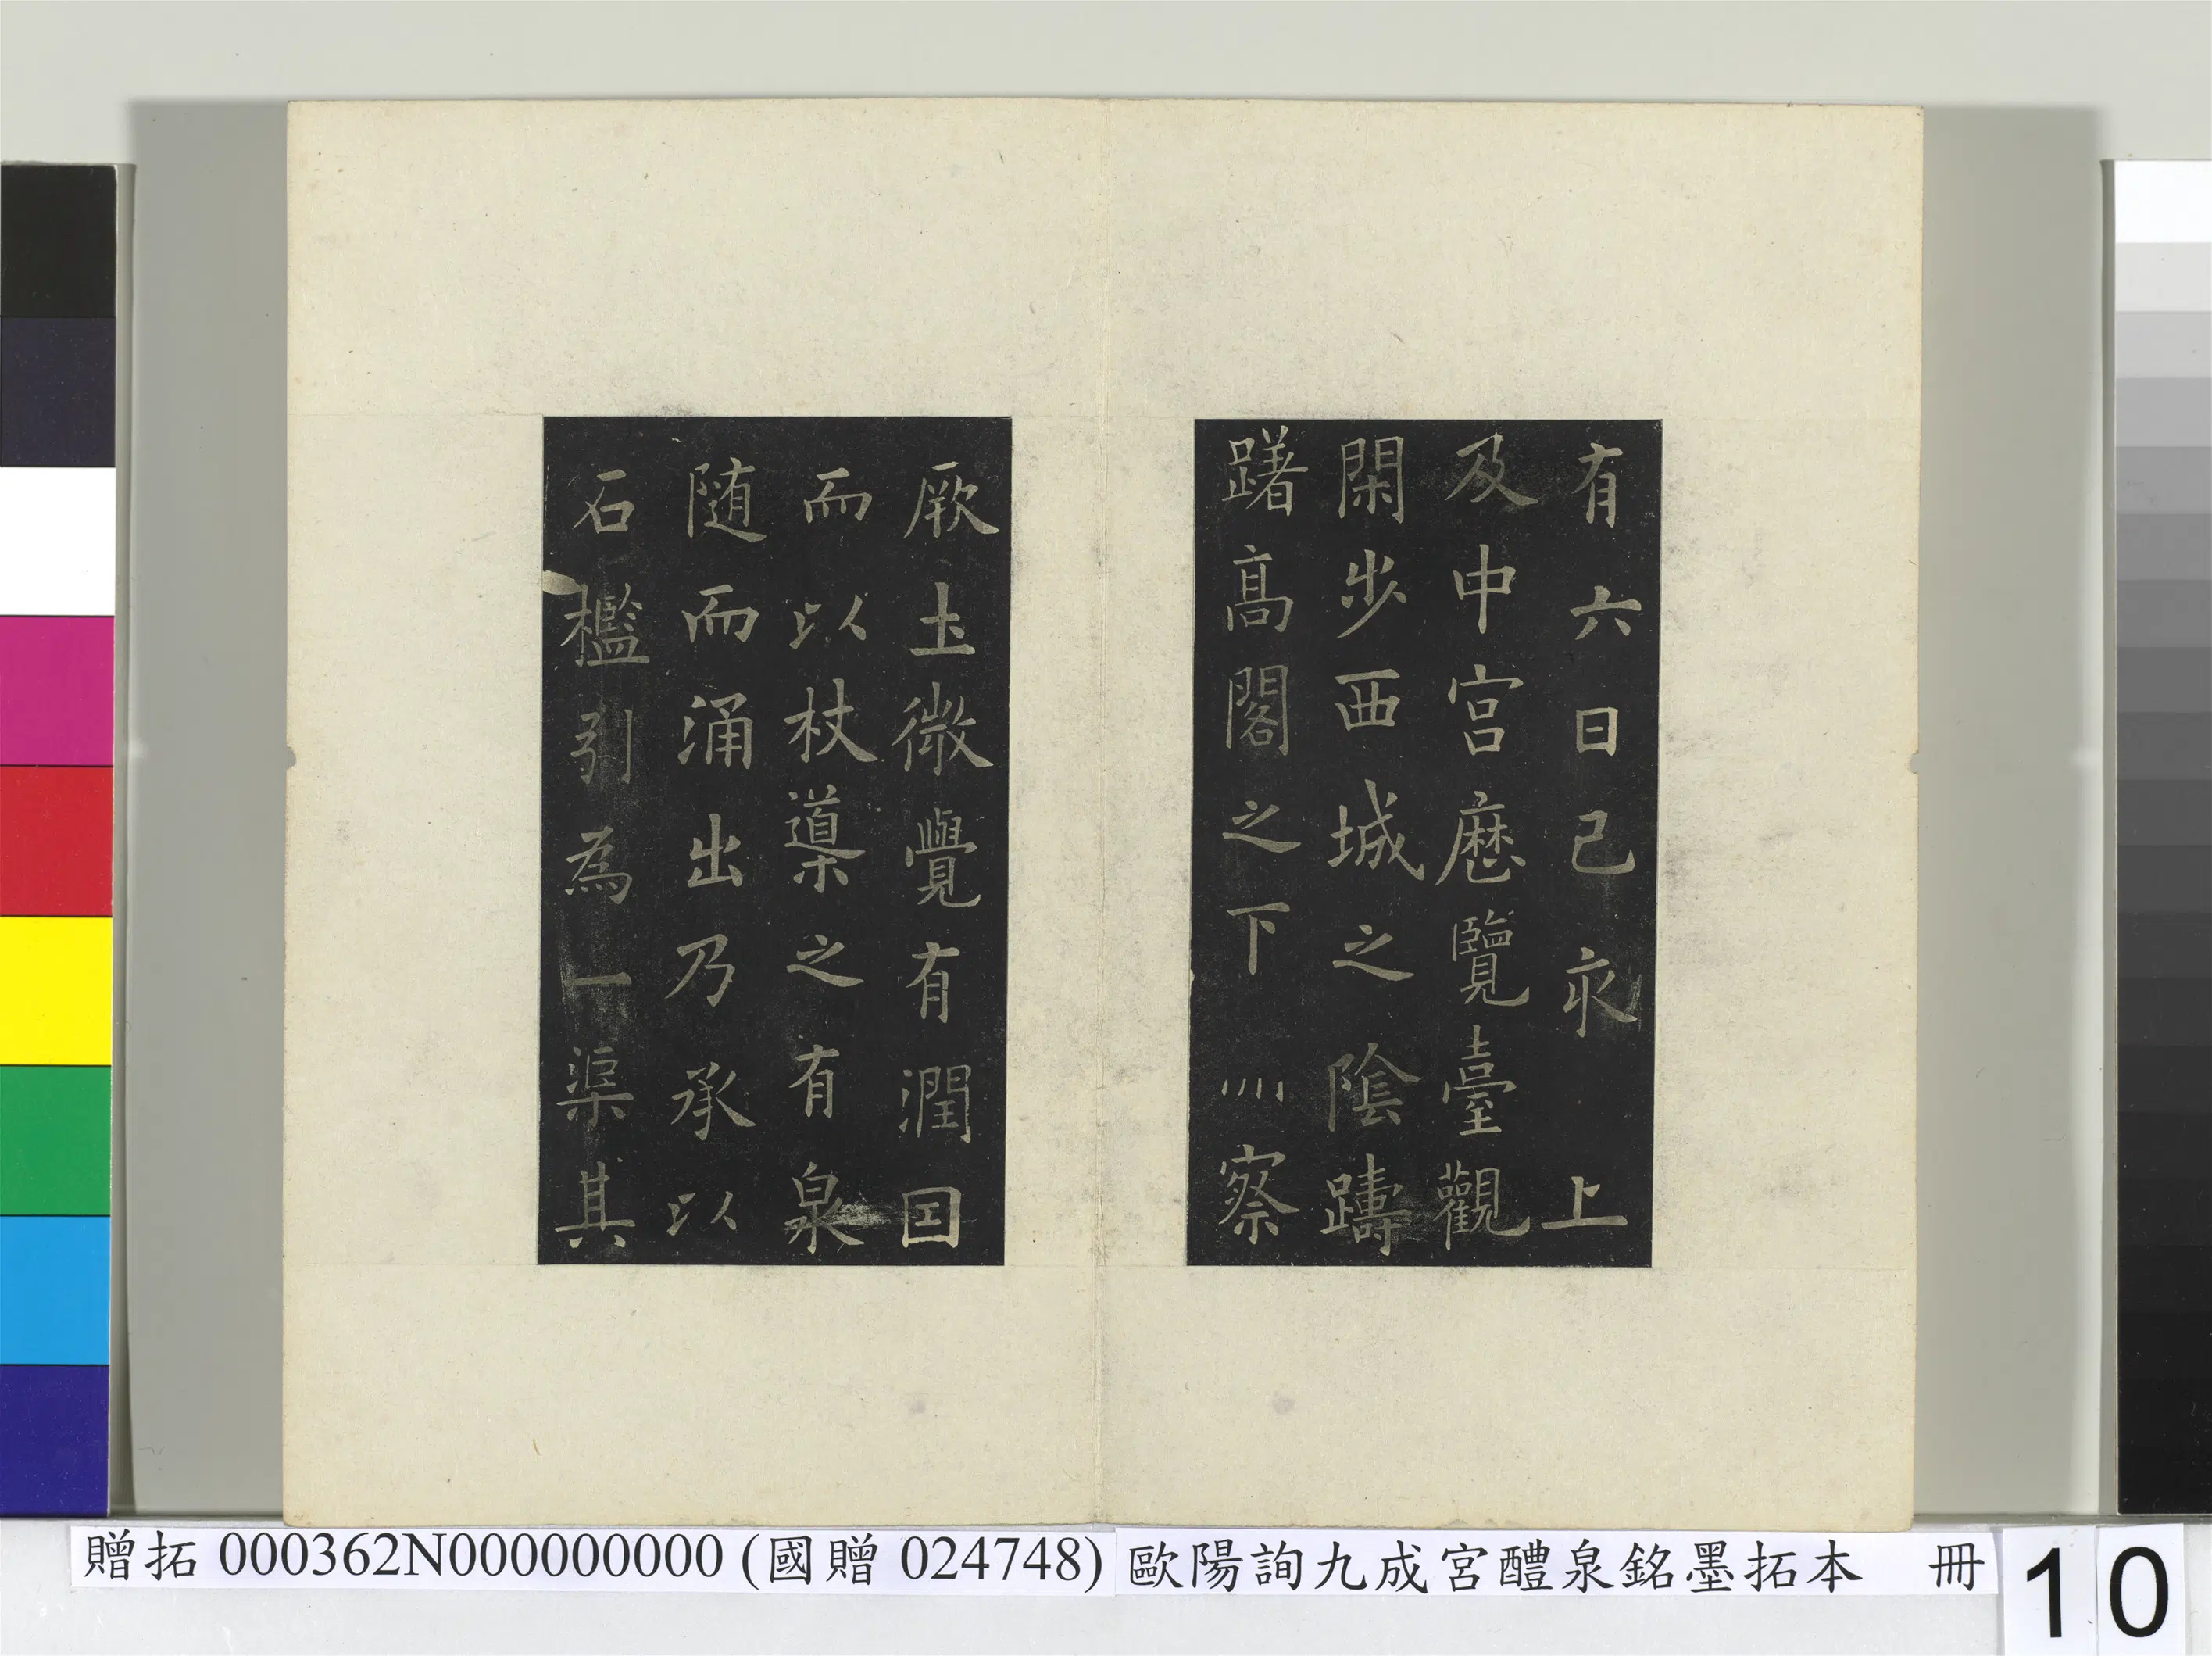 有六日己亥 上
及中宮歷覽臺觀
閑步西城之陰躊
躇髙閣之下察
厥圡微覺有潤囙
而以杖導之有泉
随而涌出乃承以
石檻引為一渠其
贈拓 000362N000000000 (國贈 024748) 歐陽詢九成宮醴泉銘墨拓本 冊 10